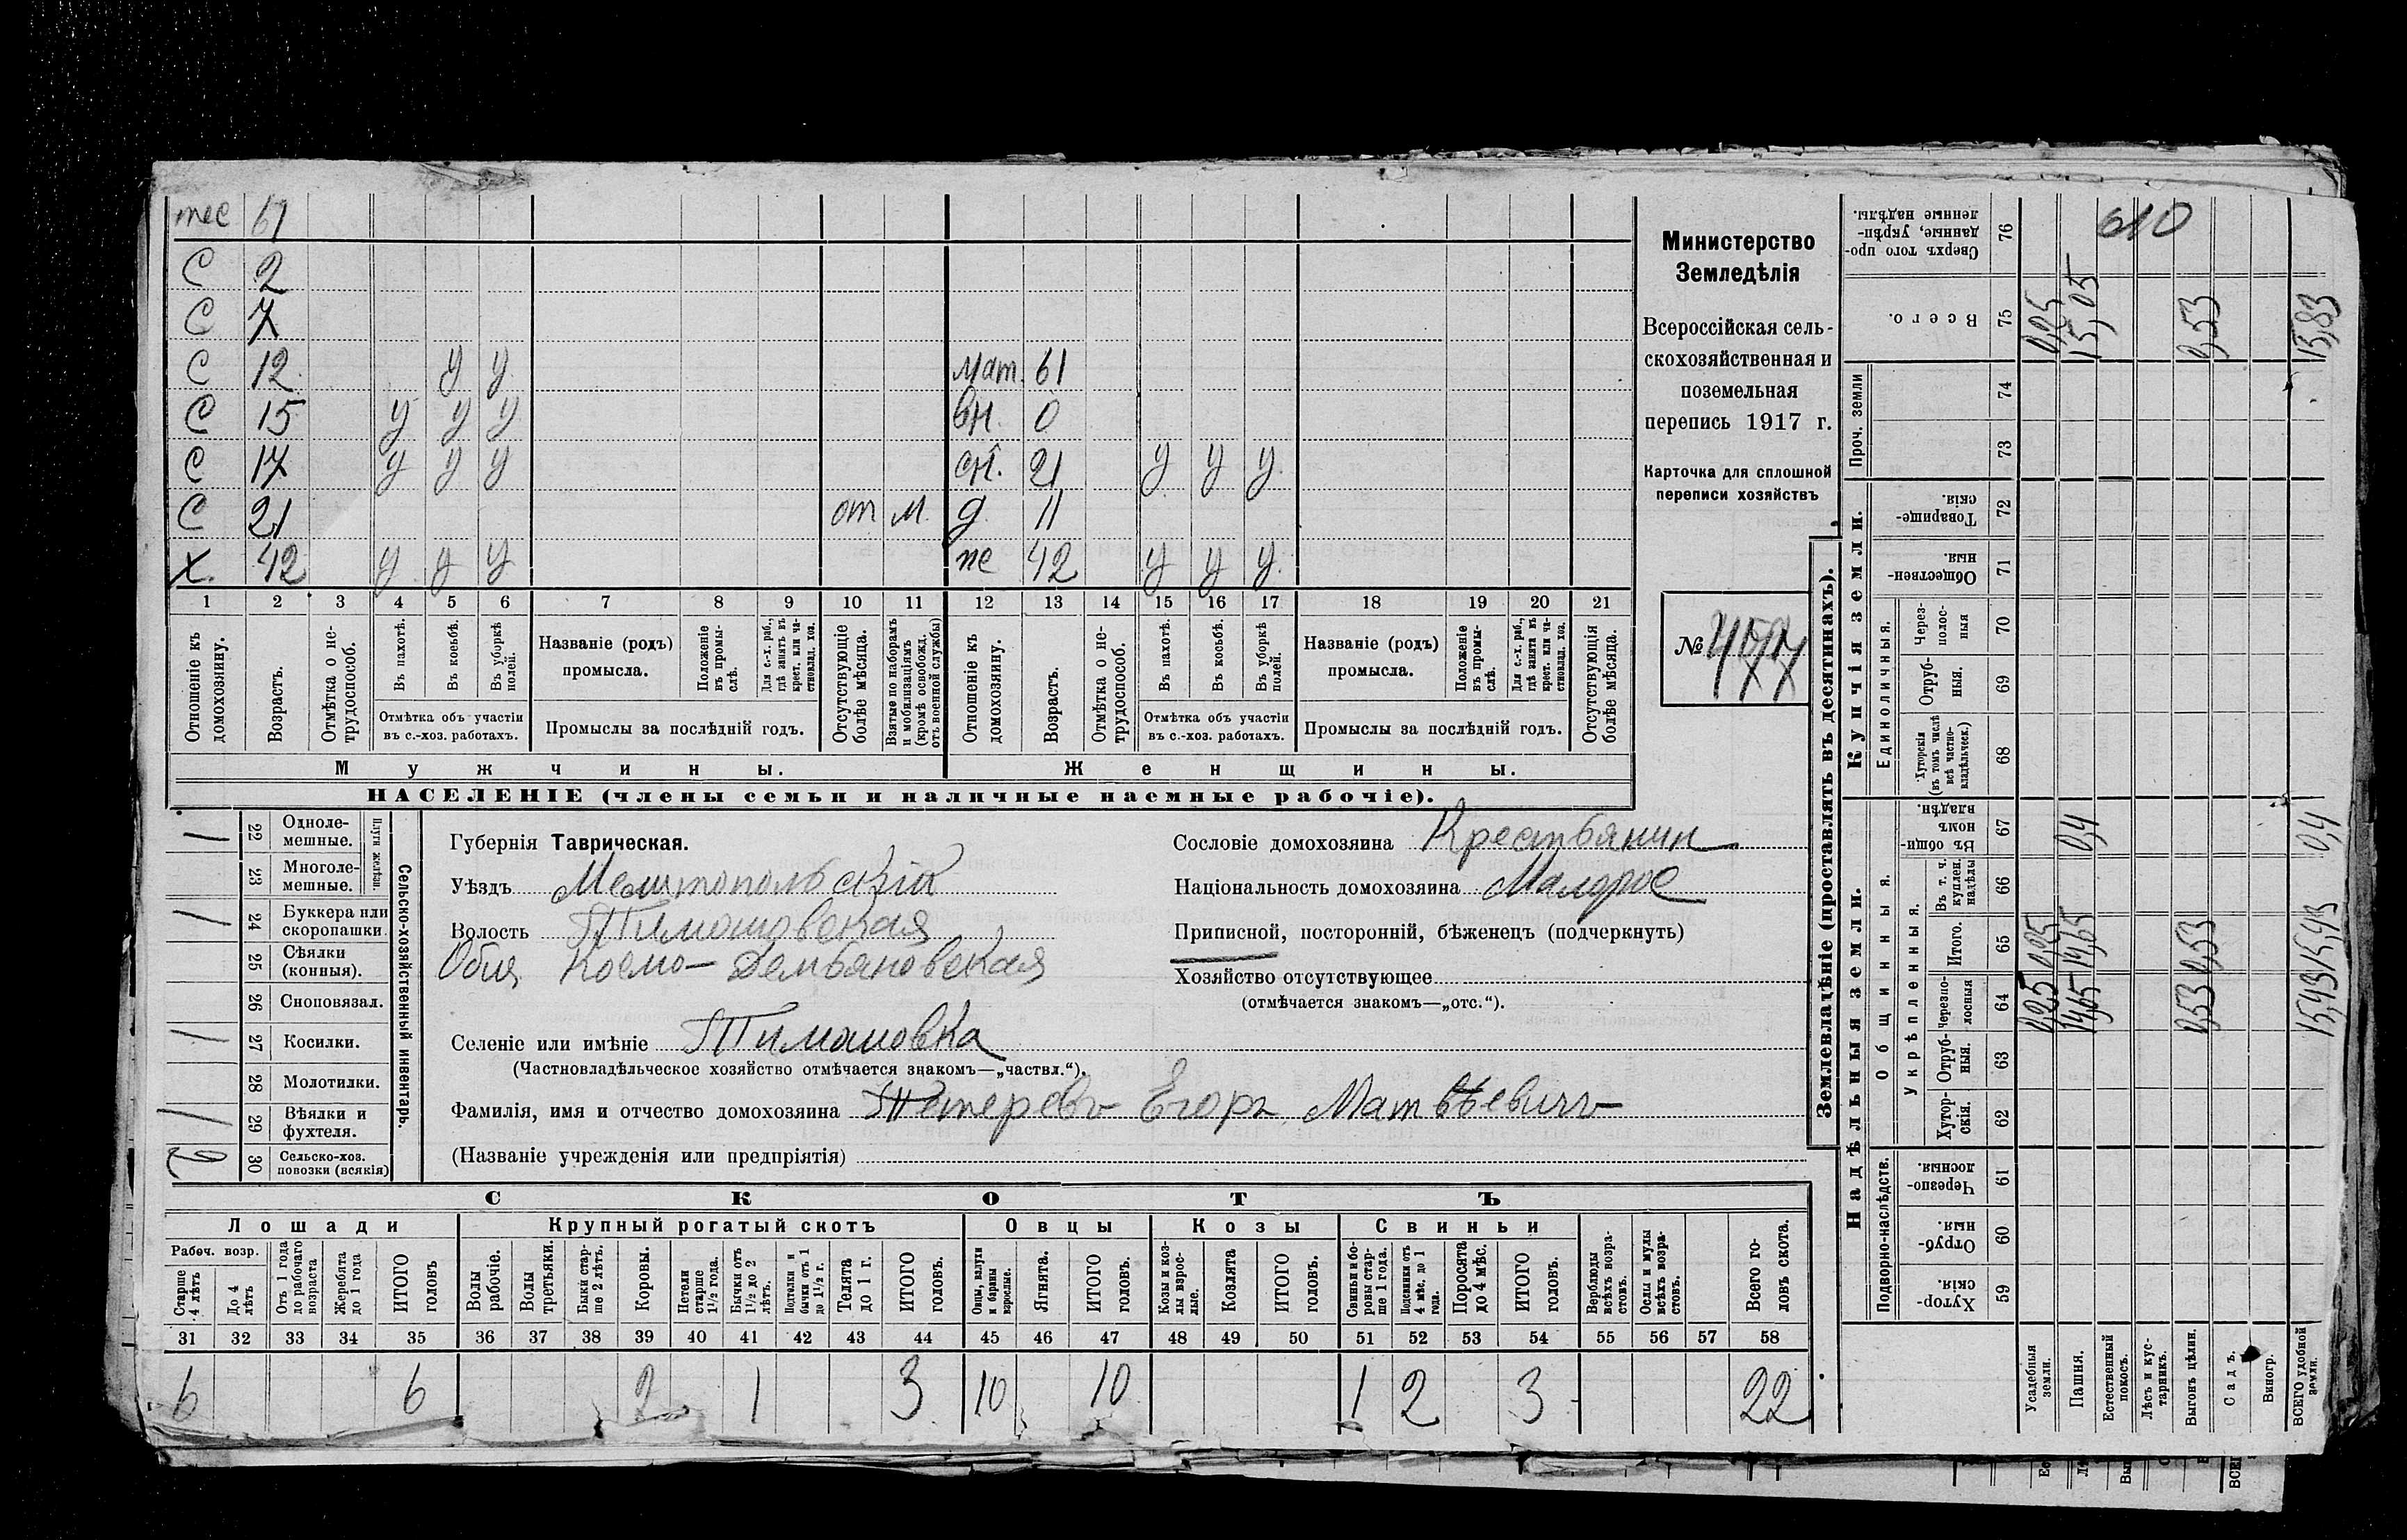 тес 61
С 2
С 7
С 12 у у мат. 61
С 15 у у у вн. 0
С 17 у у у сн. 21 у у у
С 21 от м. д. 11
х. 42 у у у же 42 у у у
1 2 3 4 5 6 7 8 9 10 11 12 13 14 15 16 17 18 19 20 21
Отношеніе къ домохозяину.
Возрастъ.
Отмѣтка о не-трудоспособ.
Въ пахотѣ.
Въ косьбѣ.
Въ уборкѣ полей.
Отмѣтка объ участіи
въ с.-хоз. работахъ.
Названіе (родъ)
промысла.
Положеніе въ промы-слѣ.
Для с.-х. раб., гдѣ занятъ въ крест. или ча-стновлад. хоз.
Промыслы за послѣдній годъ.
Отсутствующіе болѣе мѣсяца.
Взятые по наборамъ и мобилизаціямъ (кромѣ освобожд. отъ военной службы)
Отношеніе къ домохозяину.
Возрастъ.
Отмѣтка о не-трудоспособ.
Въ пахотѣ.
Въ косьбѣ.
Въ уборкѣ полей.
Отмѣтка объ участіи
въ с.-хоз. работахъ.
Названіе (родъ)
промысла.
Положеніе въ промы-слѣ.
Для с.-х. раб., гдѣ занята въ крест. или ча-стновлад. хоз.
Промыслы за послѣдній годъ.
Отсутствующія болѣе мѣсяца.
Мужчины. Женщины.
НАСЕЛЕНІЕ (члены семьи и наличные наемные рабочіе).
Министерство
Земледѣлія
Всероссійская сель-
скохозяйственная и
поземельная
перепись 1917 г.
Карточка для сплошной
переписи хозяйствъ
№ 477
1 22 Одноле-мешные.
23 Многоле-мешные.
Плуги желѣзн.
1 24 Буккера или скоропашки.
25 Сѣялки (конныя).
26 Сноповязал.
1 27 Косилки.
28 Молотилки.
1 29 Вѣялки и фухтеля.
2 30 Сельско-хоз. повозки (всякія)
Сельско-хозяйственный инвентарь.
Губернія Таврическая.
Уѣздъ Мелитопольскій
Волость Тимошовская
Общ. Космо-Демьяновская
Селеніе или имѣніе Тимошовка
(Частновладѣльческое хозяйство отмѣчается знакомъ—„частвл.“).
Фамилія, имя и отчество домохозяина Тетеревъ Егоръ Матвѣевичъ
(Названіе учрежденія или предпріятія)
Сословіе домохозяина Крестьянин
Національность домохозяина Малорос
Приписной, посторонній, бѣженецъ (подчеркнуть)
Хозяйство отсутствующее
(отмѣчается знакомъ—„отс.“).
СКОТЪ
Лошади Крупный рогатый скотъ Овцы Козы Свиньи
Рабоч. возр.
Старше 4 лѣтъ
До 4 лѣтъ
Отъ 1 года до рабочаго возраста
Жеребята до 1 года
ИТОГО головъ
Волы рабочіе.
Волы третьяки.
Быки стар-ше 2 лѣтъ.
Коровы.
Нетели старше 1½ года.
Бычки отъ 1½ до 2 лѣтъ.
Подтелки и бычки отъ 1 до 1½ г.
Телята до 1 г.
ИТОГО головъ.
Овцы, валухи и бараны взрослые.
Ягнята.
ИТОГО головъ.
Козы и коз-лы взрос-лые.
Козлята
ИТОГО головъ.
Свиньи и бо-ровы стар-ше 1 года.
Подсвинки отъ 4 мѣс. до 1 года.
Поросята до 4 мѣс.
ИТОГО головъ.
Верблюды всѣхъ возра-стовъ.
Ослы и мулы всѣхъ возра-стовъ.
Всего го-ловъ скота.
31 32 33 34 35 36 37 38 39 40 41 42 43 44 45 46 47 48 49 50 51 52 53 54 55 56 57 58
6 6 2 1 3 10 10 1 2 3 22
Землевладѣніе (проставлять въ десятинахъ).
Надѣльныя земли. Купчія земли.
Подворно-наслѣдств.
Общинныя.
Укрѣпленныя.
Единоличныя.
Проч. земли
Хутор-скія. 59
Отруб-ныя. 60
Черезпо-лосныя. 61
Хутор-скія. 62
Отруб-ныя. 63
Черезпо-лосныя 64
Итого. 65
Въ т. ч. куплен. надѣлы 66
Въ общи-номъ владѣн. 67
Хуторскія (въ томъ числѣ всѣ частно-владѣльческ.) 68
Отруб-ныя. 69
Через-полос-ныя 70
Обществен-ныя 71
Товарище-скія. 72
73
74
Всего. 75
Сверхъ того про-данные, укрѣп-ленные надѣлы. 76
610
Усадебныя земли. 0,25 0,25 0,25
Пашня. 14,65 14,65 0,4 15,05
Естественный покосъ.
Лѣсъ и кус-тарникъ.
Выгонъ цѣлин. 0,53 0,53 0,53
Садъ.
Виногр.
ВСЕГО удобной земли. 15,43 15,43 0,4 15,83